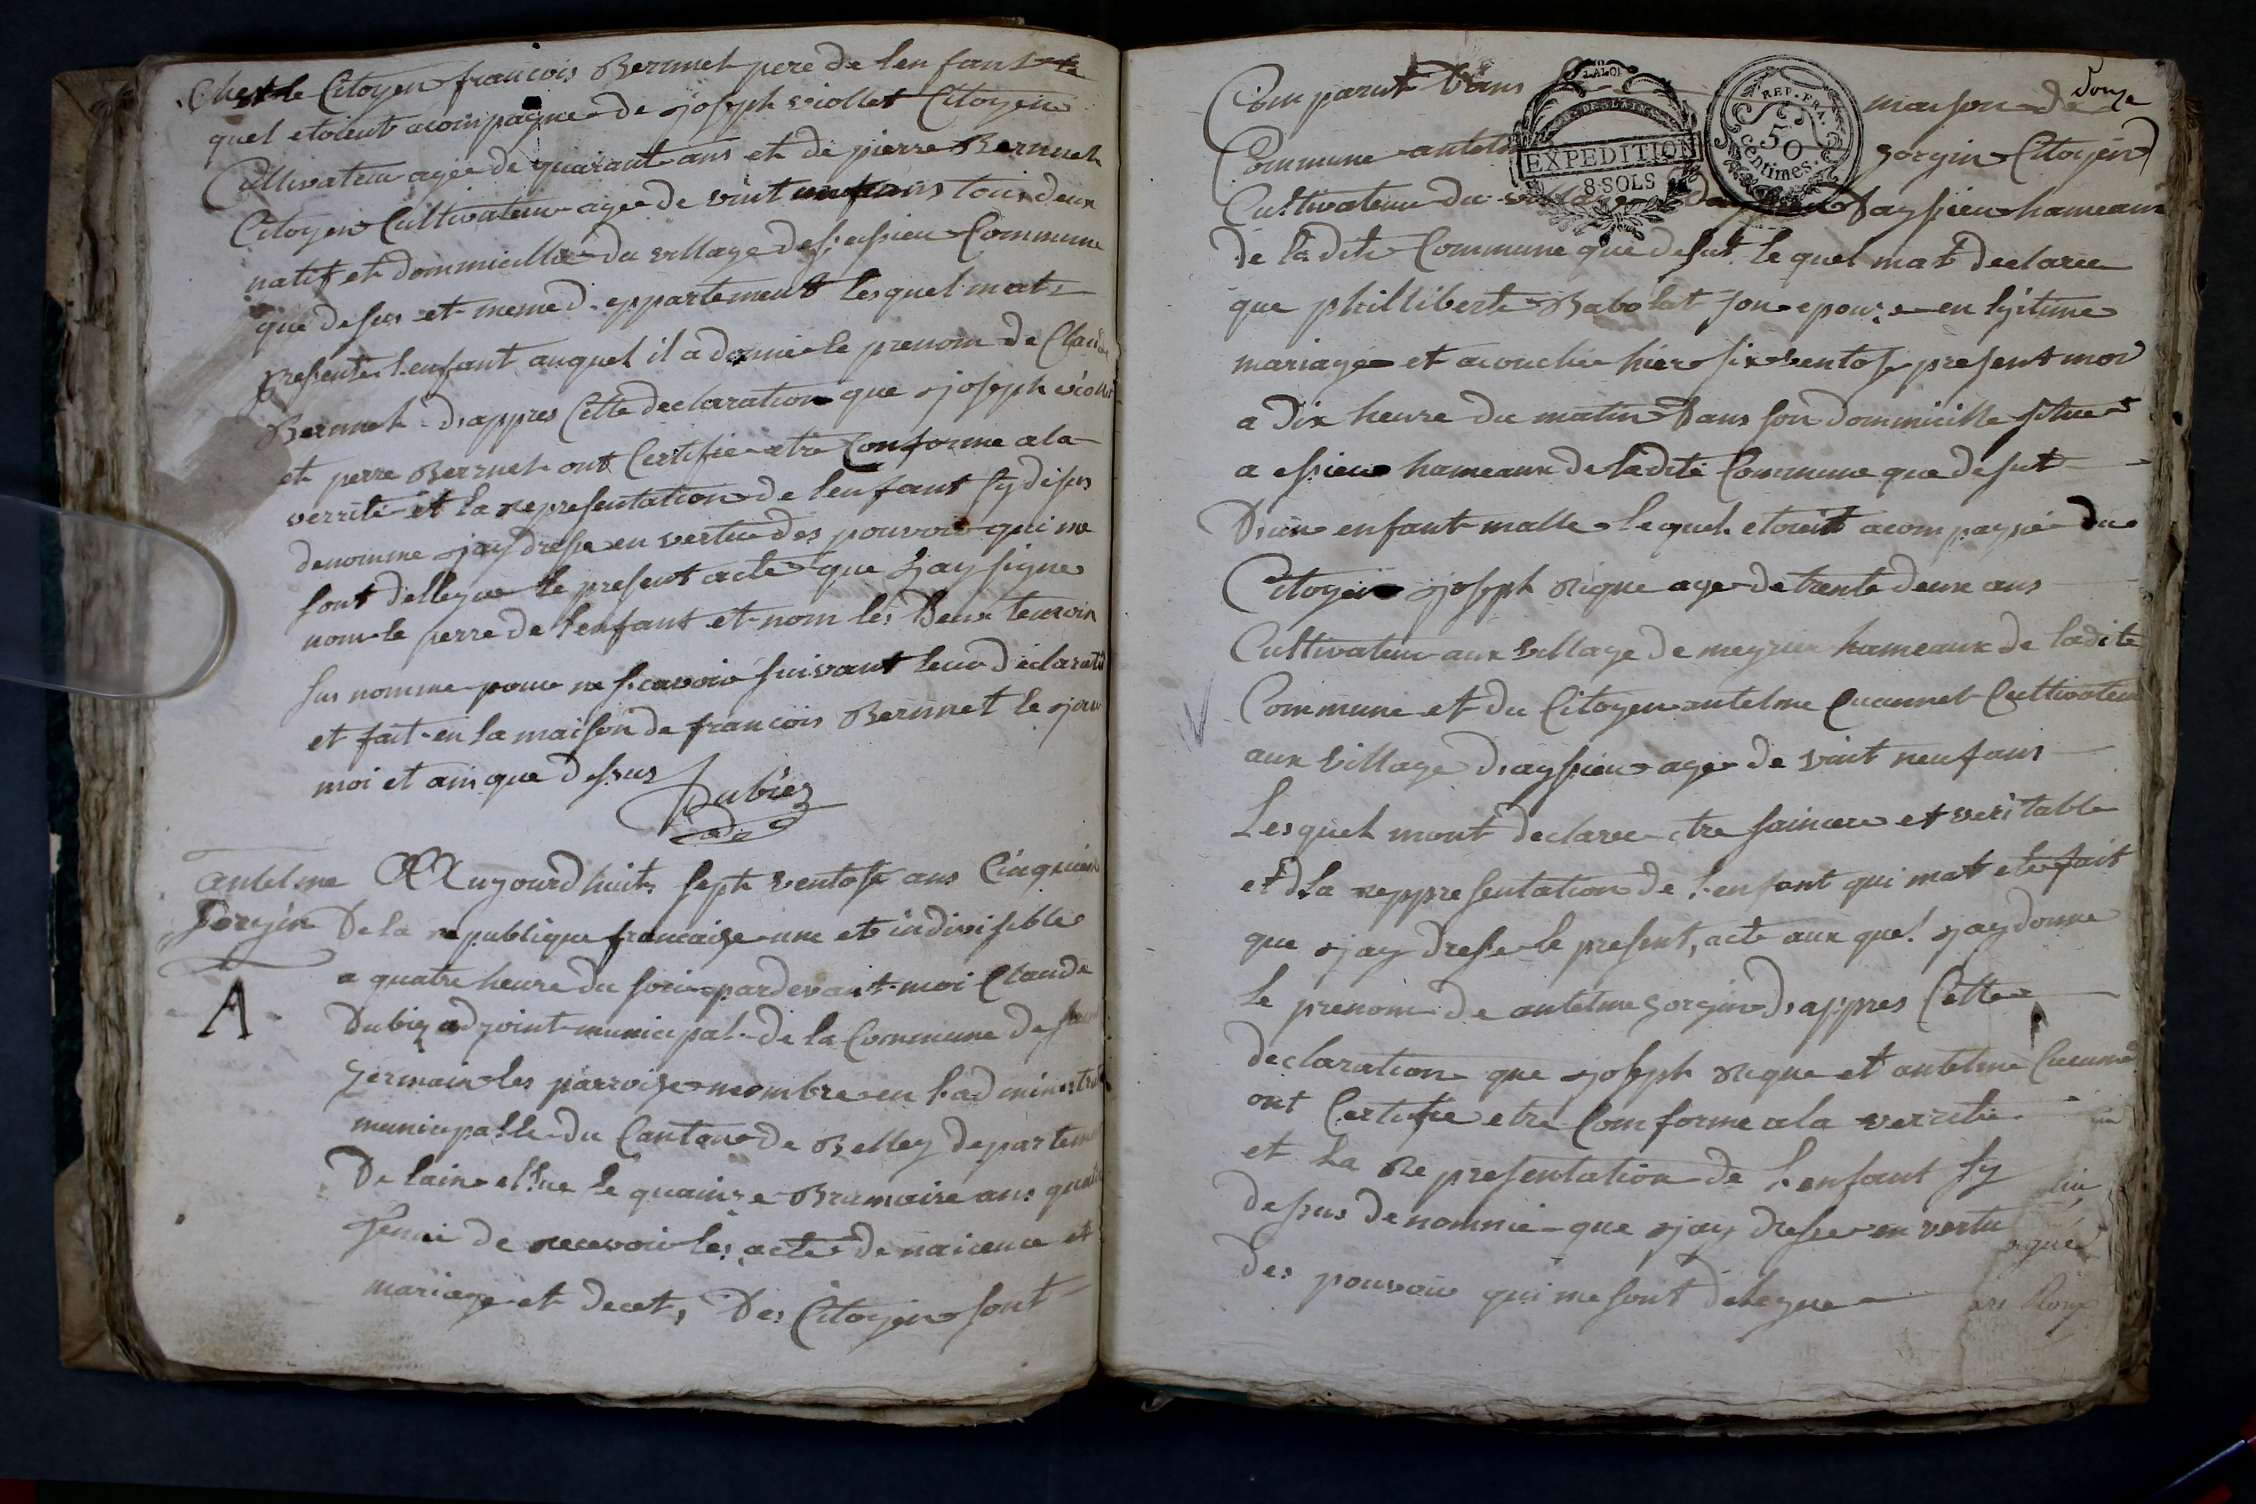 Chest le Citoyen francois Berrmet pere de lenfant
quel etoient acoinpagne de sjoseph viollet Citoyen
Cultivateur agée de quarant ans et de pierre Berrnet
Citoyen Cultivateur age de vint ans tous deux
natif et dommicillie du village dessiessieu Commune
que desus et meme deppartement lesquel mat
presente lenfant auquel il a donné le prenom de Claude
Berrmet d'appres Cette declaration que sjoseph viollet
et perre Berrnet ont Certifie etre Conforme a la
verrite et la representation de lenfant sy desus
denomme sjay dresse en vertu des pouvoir qui me
sont dellegue le present acte que sjay signe
nom le perre de lenfant et nom les deux temoin
sus nomme pour ne scavoir suivant leur declarati
et fait en la maison de francois Berrmet le sjour
moi et ain que dessus
Dubiez
antelme
Gorgin
A
Aujourdhuit sept ventose ans Cinquiem
De la republique francaise une et indivisible
a quatre heure du soir pardevant moi Claude
Dubiez adjoint municipal de la Commune de
germain les parroise membre en ladministrat
municipalle du Canton de Belley departem
De lain ellue le quainze Brumaire ans quat
de recevoir les acte de naicence et
mariage et decet, Des Citoyen sont
Douze
Comparut dans maison de
LA LOI
EXPEDITION
8 SOLS
REP. FRA.
50
centimes.
Commune gorgin Citoyen
Cultivateur du village dayssieu hameaux
de la dite Commune que desut le quel mat declaree
que phillibert Babolat son epouze en lgitime
mariage et acouchee hier six ventose present moi
a dix heure du matin dans son dommicille situer
a essieu hameaux de ladite Commune que desut
Dun enfant malle lequel etoient acompagné du
Citoyen sjoseph rique age de trente deux ans
Cultivateur aux village de meyrieu hameaux de ladite
Commune et du Citoyen antelme Cucumet Cultivateur
aux village dayssieu age de vint neuf ans
Lesquel mont declaree etre saincere et veritable
et la reppresentation de lenfant qui mat ete fait
que sjay dresse le present, acte aux quel sjay donne
le prenom de antelme gorgin d'appres Cette
declaration que sjoseph rique et antelme Cucumet
ont Certifie etre Comforme a la verrite
et la Representation de lenfant sy
dessus denomme que sjay dresse en vertu
des pouvoir qui me sont delegue